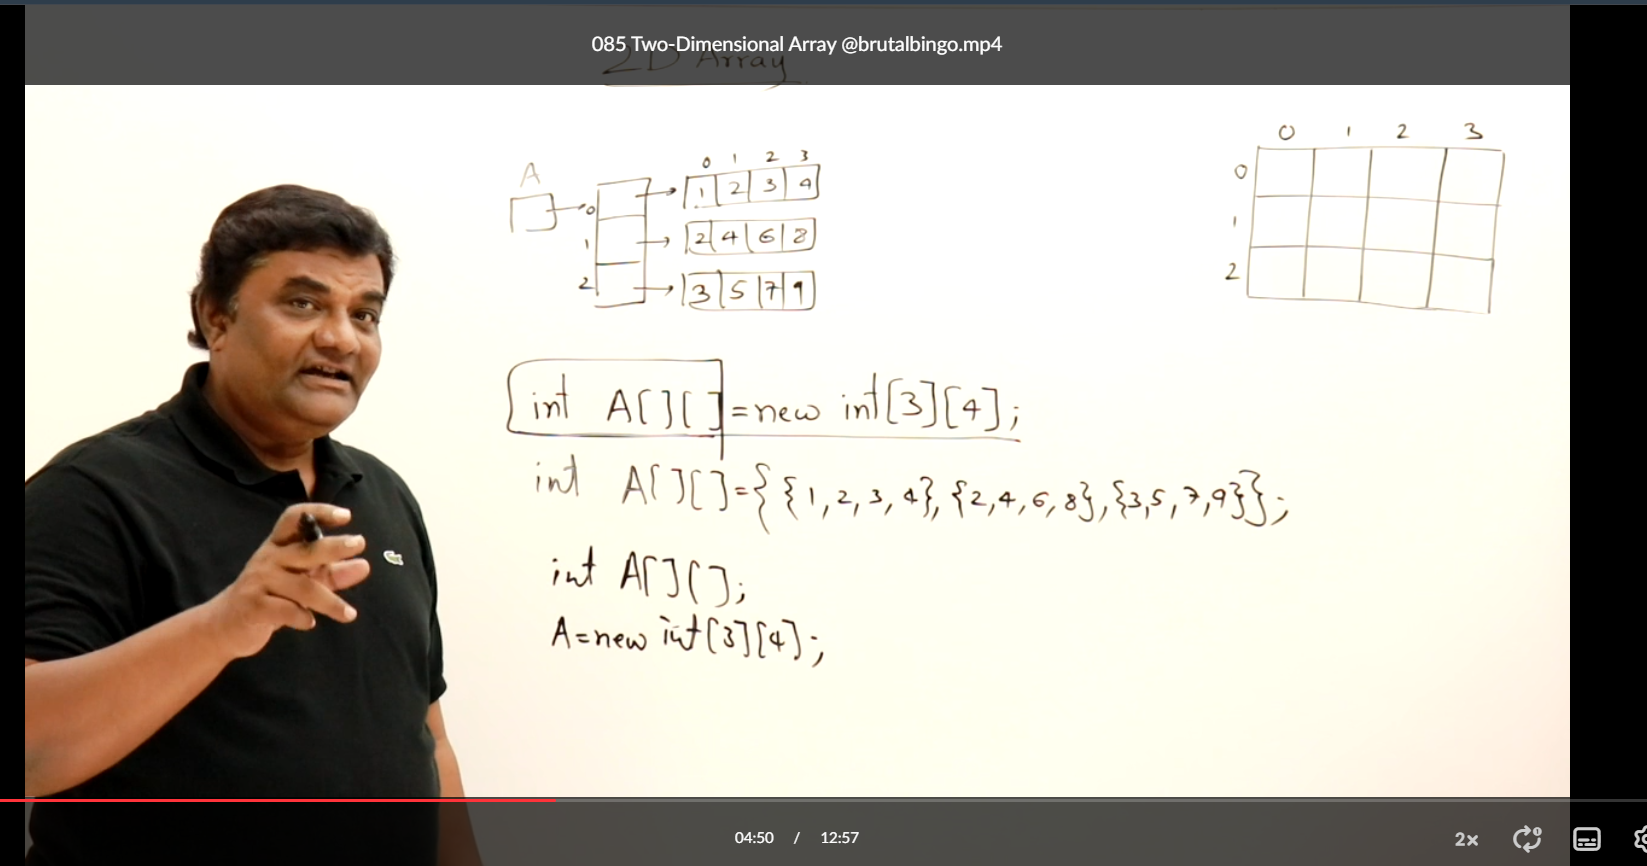 085 Two-Dimensional Array @brutalbingo.mp4
2D Array
A
0 1 2 3
0 1 2 3 4
1 2 4 6 8
2 3 5 7 9
0 1 2 3
0
1
2
int A[][]=new int[3][4];
int A[][]={{1,2,3,4},{2,4,6,8},{3,5,7,9}};
int A[][];
A=new int[3][4];
04:50 / 12:57
2x